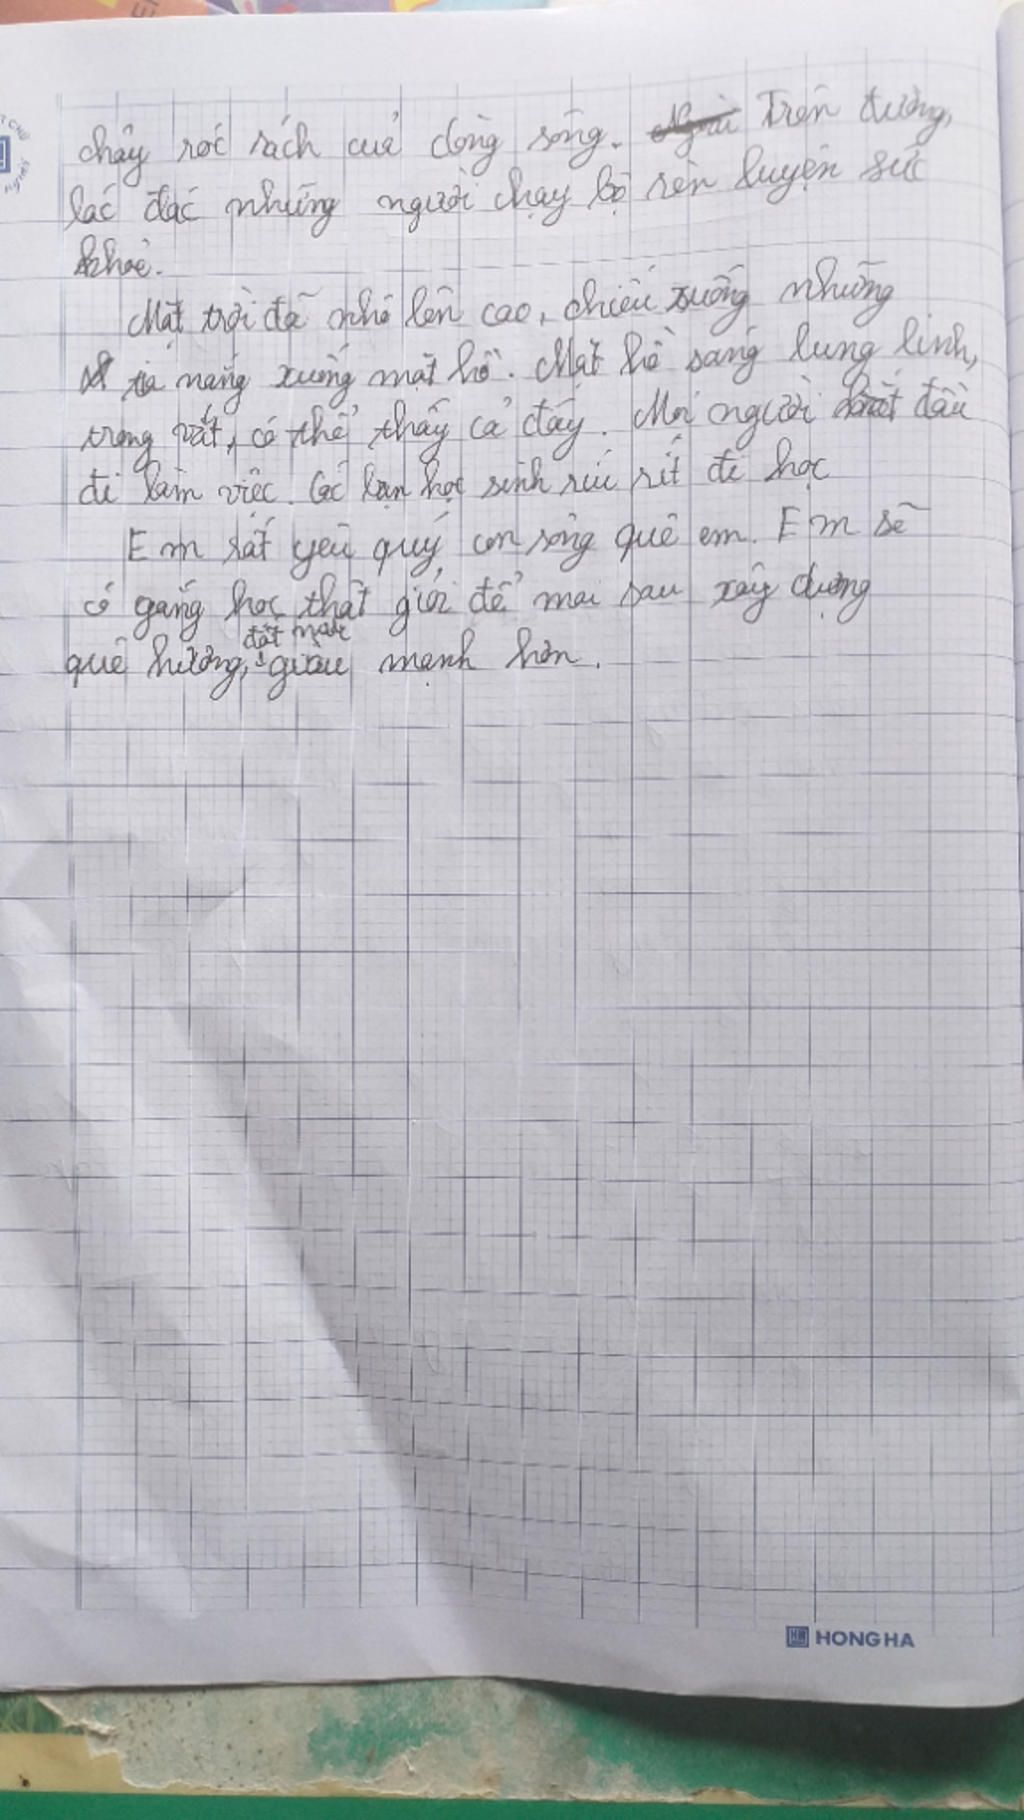 chảy róc rách của dòng sông. Trên đường,
lác đác những người chạy bộ rèn luyện sức
khoẻ.
Mặt trời đã nhô lên cao, chiếu xuống những
tia nắng xuống mặt hồ. Mặt hồ sáng lung linh,
trong vắt, có thể thấy cả đáy. Mọi người bắt đầu
đi làm việc. Các bạn học sinh ríu rít đi học
Em rất yêu quý con sông quê em. Em sẽ
cố gắng học thật giỏi để mai sau xây dựng
đất nước
quê hương, giàu mạnh hơn.
HONG HA